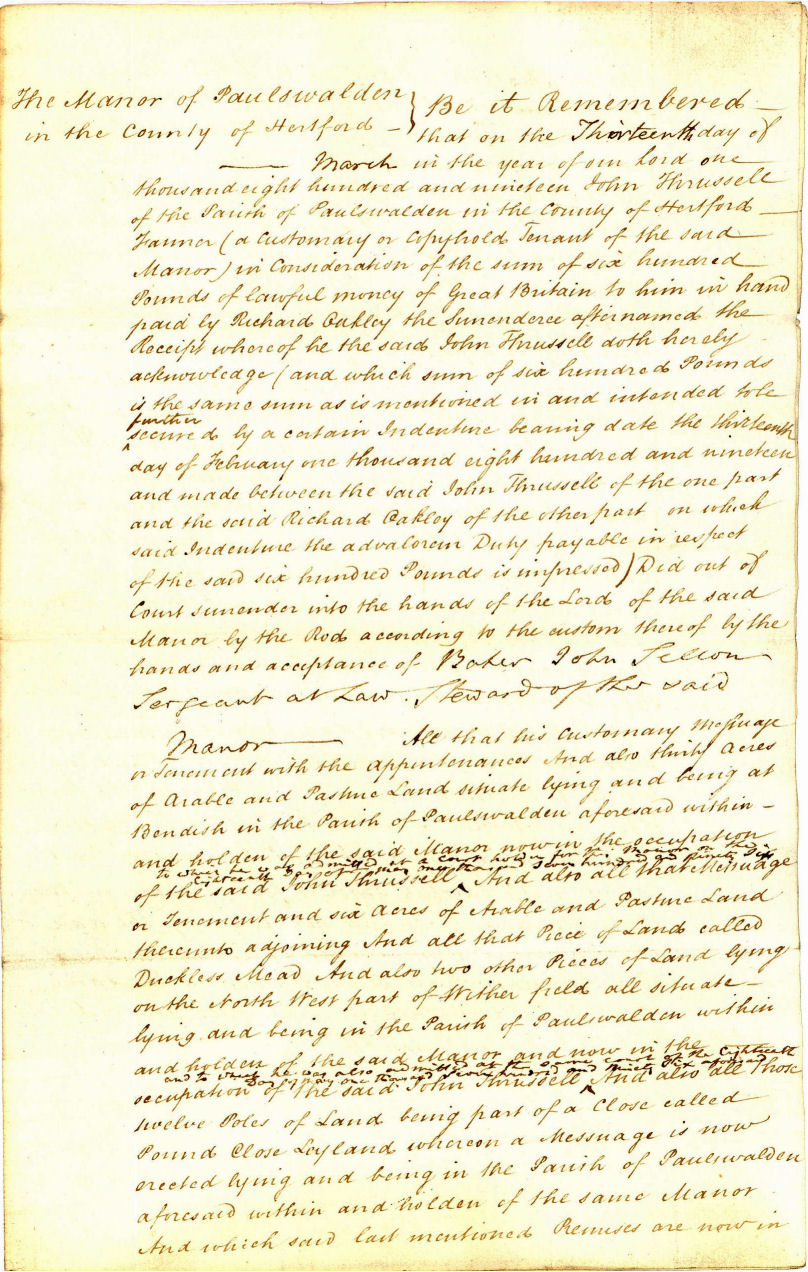 The Manor of Paulswalden } Be it Remembered —
in the County of Hertford — } that on the Thirteenth day of
— March in the year of our Lord one
thousand eight hundred and nineteen John Thrussell
of the Parish of Paulswalden in the County of Hertford —
Farmer (a Customary or Copyhold Tenant of the said
Manor) in Consideration of the sum of six hundred
Pounds of lawful money of Great Britain to him in hand
paid by Richard Oakley the Surrenderee afternamed the
Receipt whereof he the said John Thrussell doth hereby
acknowledge (and which sum of six hundred Pounds
is the same sum as is mentioned in and intended to be
further
secured by a certain Indenture bearing date the thirteenth
day of February one thousand eight hundred and nineteen
and made between the said John Thrussell of the one part
and the said Richard Oakley of the other part on which
said Indenture the advalorem Duty payable in respect
of the said six hundred Pounds is impressed) Did out of
Court surrender into the hands of the Lord of the said
Manor by the Rod according to the custom thereof by the
hands and acceptance of Baker John Sellon
Sergeant at Law. Steward of the said
Manor — All that his Customary Messuage
or Tenement with the appurtenances And also thirty Acres
of Arable and Pasture Land situate lying and being at
Bendish in the Parish of Paulswalden aforesaid within —
and holden of the said Manor now in the occupation
to which he was admitted at a Court holden for the Manor on the
Eighteenth Day of May one thousand seven hundred and ninety Six
of the said John Thrussell ^ And also all that Messuage
or Tenement and six Acres of Arable and Pasture Land
thereunto adjoining And all that Piece of Land called
Duckless Mead And also two other Pieces of Land lying
on the North West part of Wither field all situate —
lying and being in the Parish of Paulswalden within
and holden of the said Manor and now in the
and to which he was also admitted at the same Court of the Eighteenth
Day of May one thousand seven hundred and Ninety Six aforesaid
occupation of the said John Thrussell ^ And also all those
twelve Poles of Land being part of a Close called
Pound Close Leyland whereon a Messuage is now
erected lying and being in the Parish of Paulswalden
aforesaid within and holden of the same Manor
And which said last mentioned Premises are now in